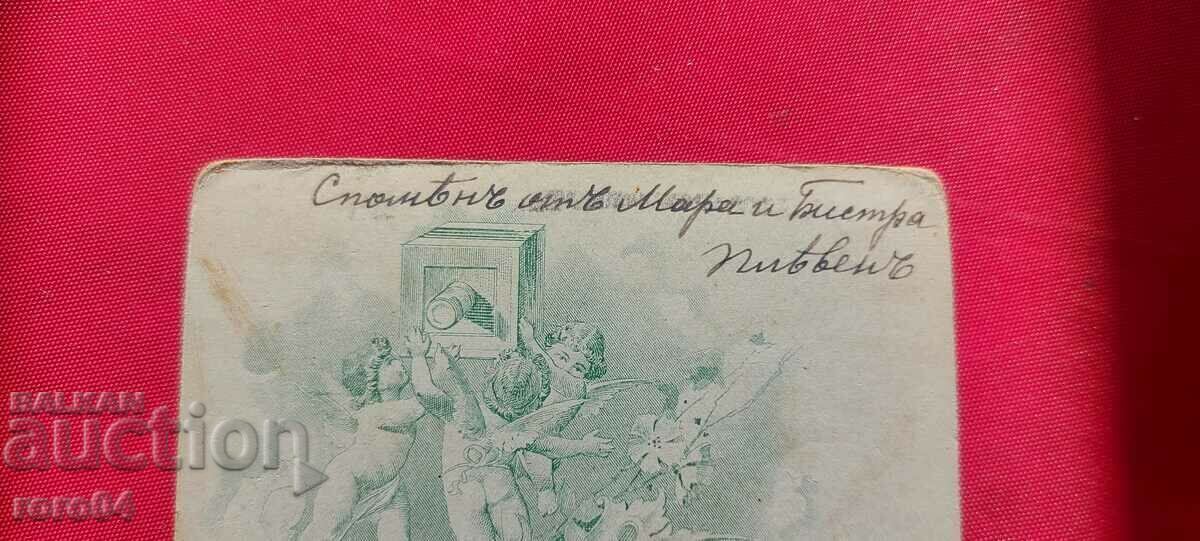 Споменъ отъ Мара и Бистра
Плѣвенъ
BALKAN
auction
roro64